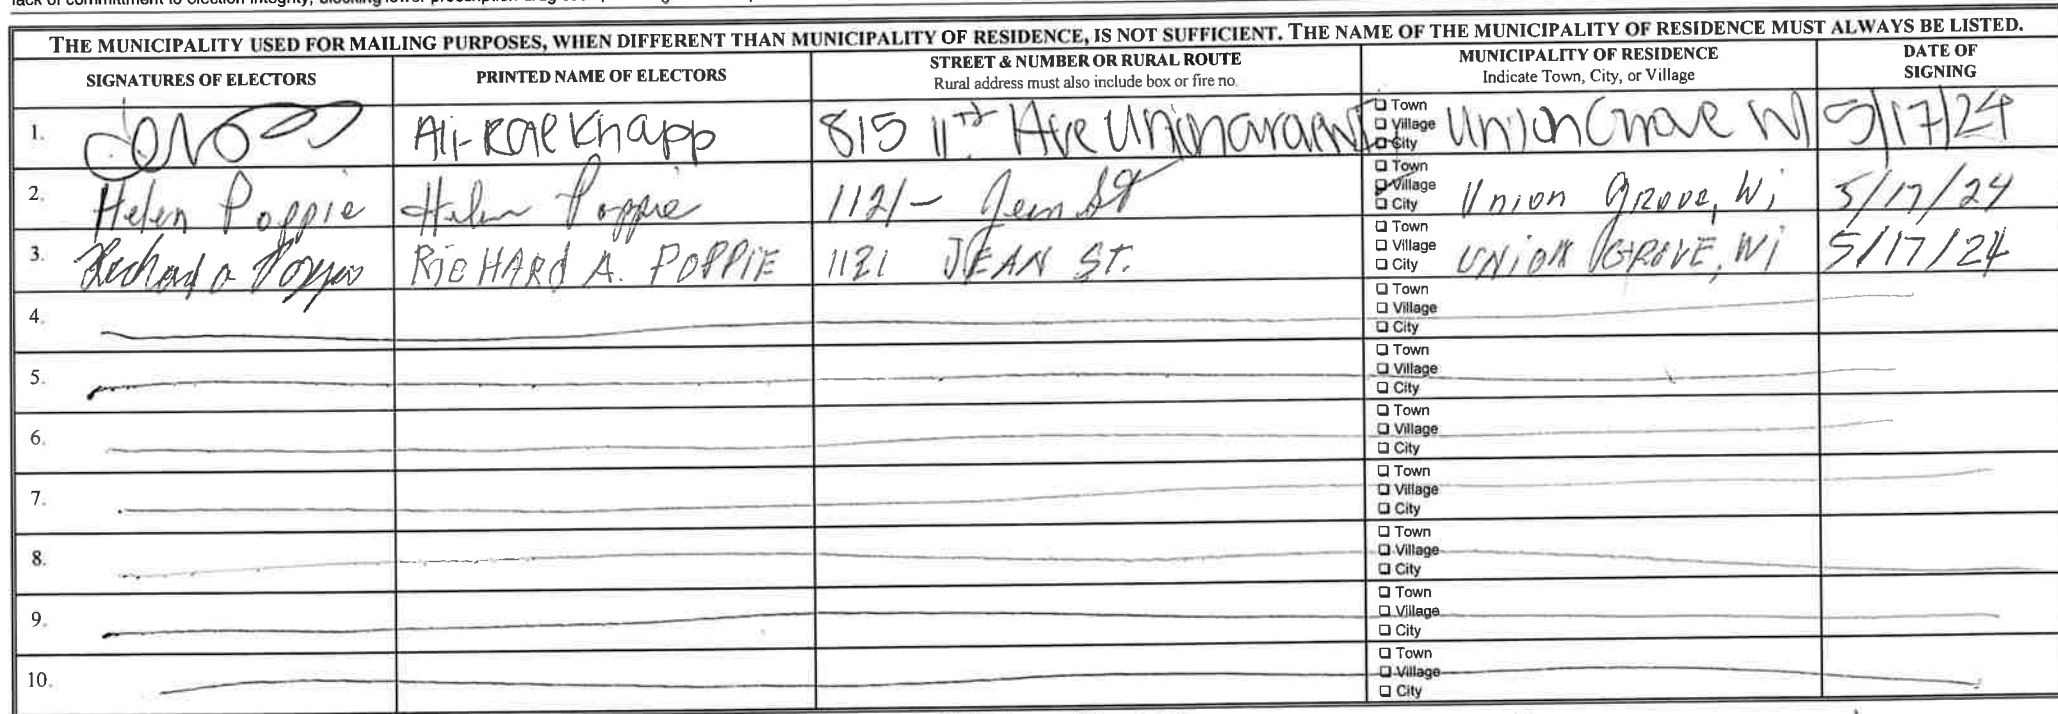 THE MUNICIPALITY USED FOR MAILING PURPOSES, WHEN DIFFERENT THAN MUNICIPALITY OF RESIDENCE, IS NOT SUFFICIENT. THE NAME OF THE MUNICIPALITY OF RESIDENCE MUST ALWAYS BE LISTED.
SIGNATURES OF ELECTORS PRINTED NAME OF ELECTORS STREET & NUMBER OR RURAL ROUTE Rural address must also include box or fire no. MUNICIPALITY OF RESIDENCE Indicate Town, City, or Village DATE OF SIGNING
1. Ali-Rae Knapp 815 11th Ave Union Grove Town Village City Union Grove WI 5/17/24
2. Helen Poppie Helen Poppie 1121 - Jean St Town Village City Union Grove, Wi 5/17/24
3. Richard A Poppie RICHARD A. POPPIE 1121 JEAN ST. Town Village City UNION GROVE, Wi 5/17/24
4. Town Village City
5. Town Village City
6. Town Village City
7. Town Village City
8. Town Village City
9. Town Village City
10. Town Village City